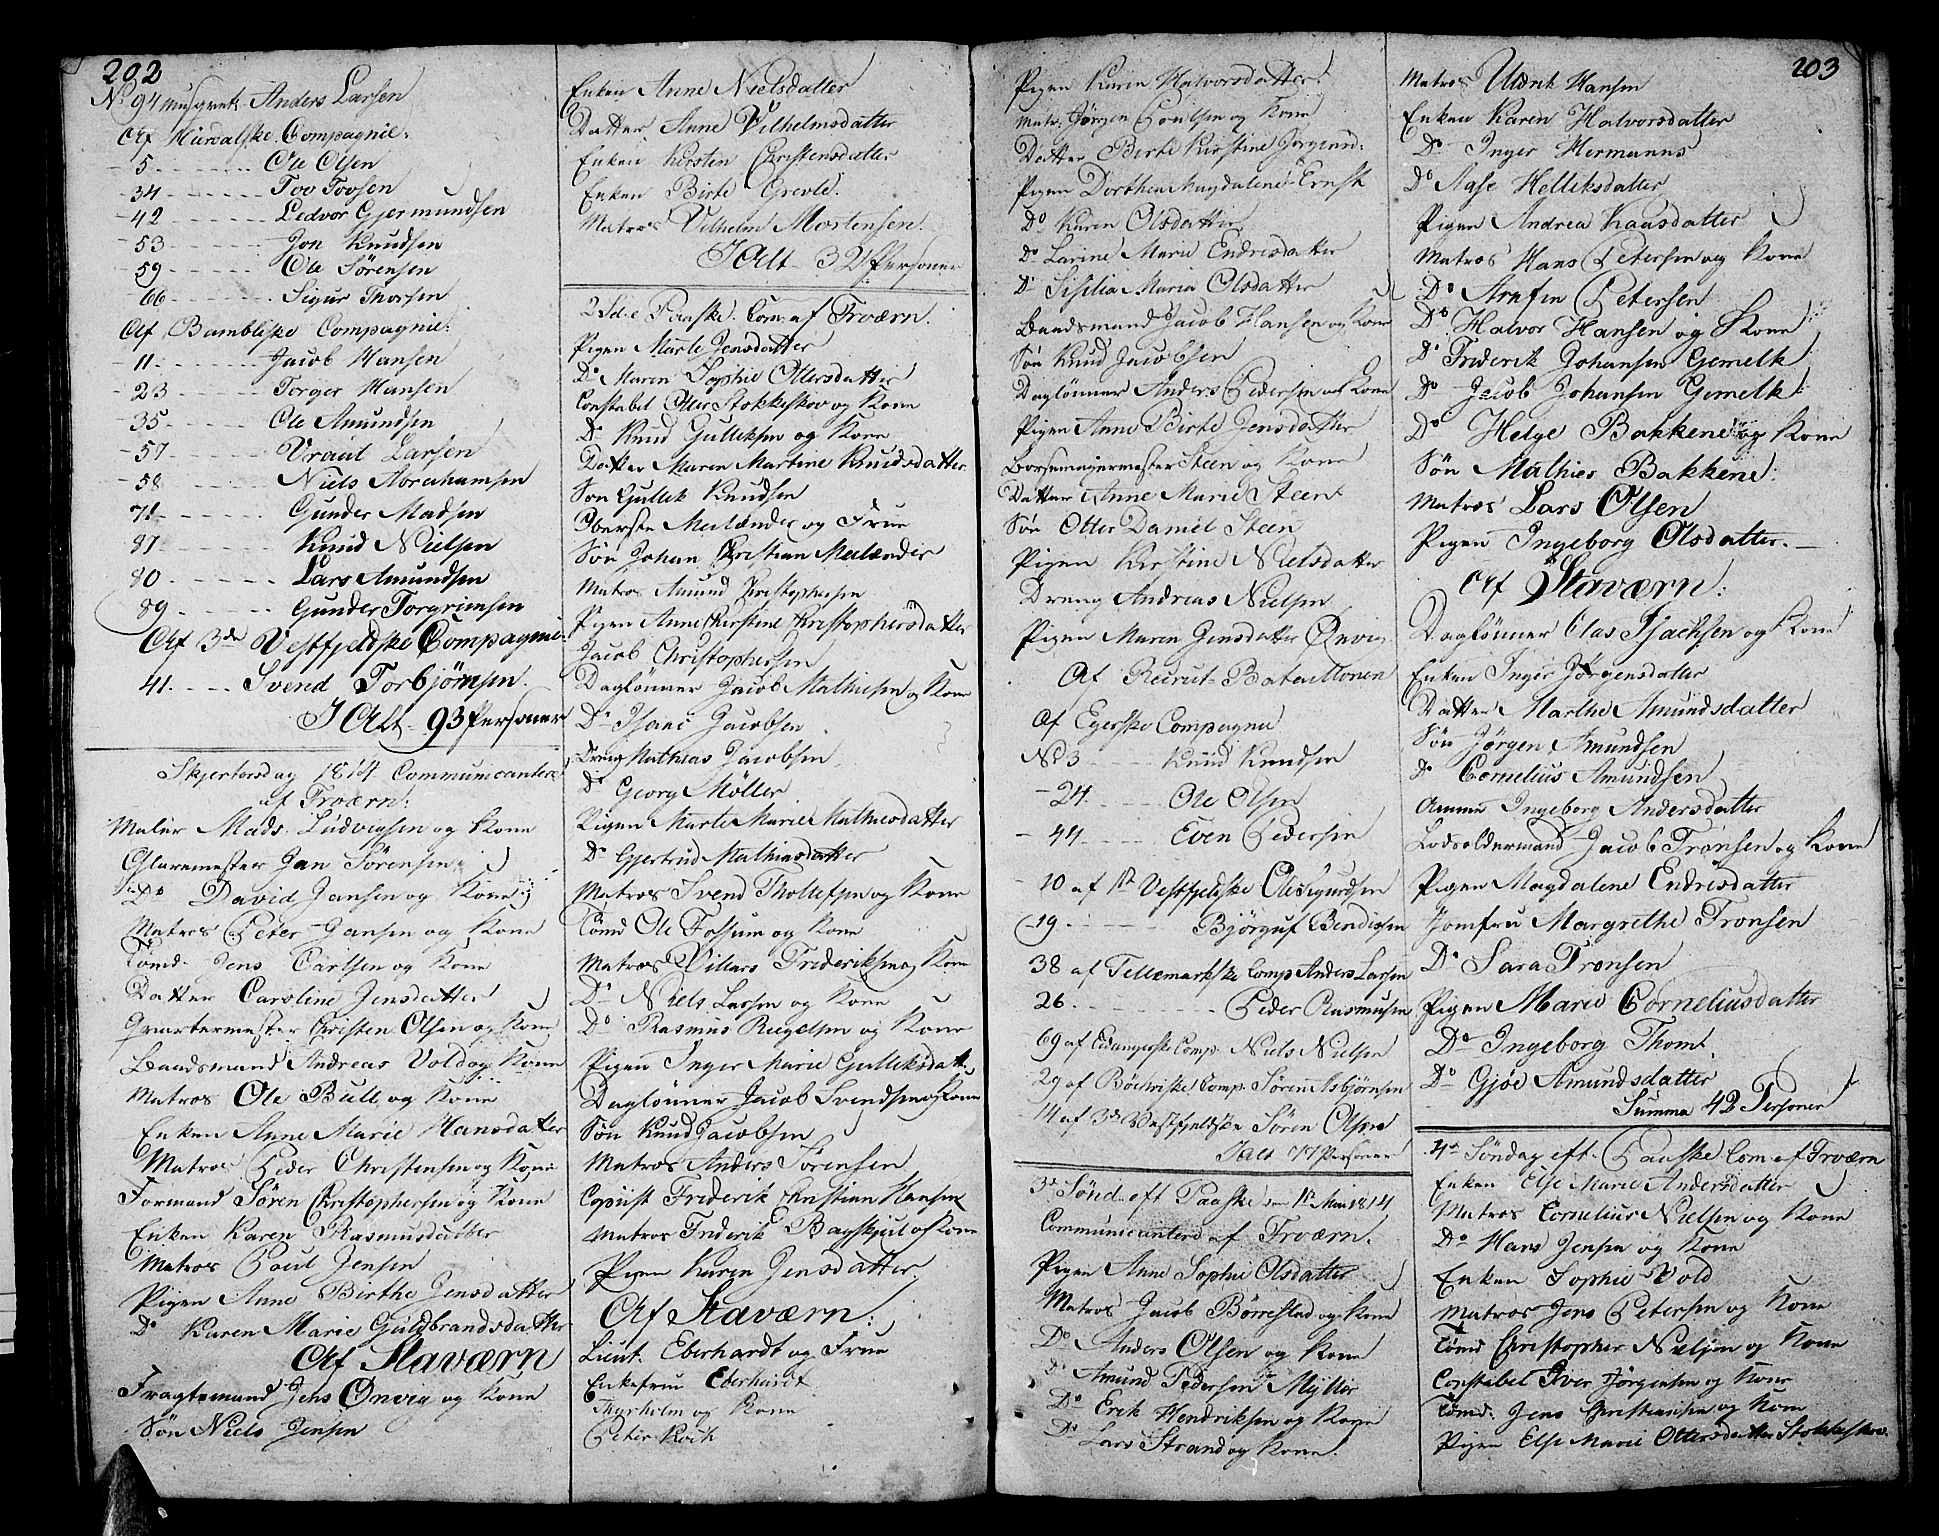 202
No 94 musqvet: Anders Larsen
Af Hierdalske Compagnie:
5 Ole Olsen
34 Tov Tovsen
42 Ledvor Gjermundsen
53 Jon Knudsen
59 Ole Sörensen
66 Sigur Thorsen
Af Bambleske Compagnie:
11 Jacob Hansen
23 Torger Hansen
35 Ole Amundsen
57 Vraul Larsen
58 Niels Abrahamsen
71 Gunder Madsen
87 Knud Nielsen
80 Lars Amundsen
89 Gunder Torgrimsen
Af 3de Vestfjeldske Compagnie
41. Svend Torbjörnsen.
I Alt 93 Personer
Skjertorsdag 1814 Communicantere
af Froværn:
Maler Mads Ludvigsen og Kone
Glarmester Jan Sörensen
Do David Jansen og Kone
Matros Peter Jansen og Kone
Tömd. Jens Carlsen og Kone
Datter Caroline Jensdatter
Qvartermester Christen Olsen og Kone
Baadsmand Andreas Vold og Kone
Matros Ole Bull og Kone
Enken Anne Marie Hansdatter
Matros Peder Christensen og Kone
Formand Sören Christophersen og Kone
Enken Karen Rasmusdatter
Matros Poul Jensen
Pigen Anne Birthe Jensdatter
Do Karen Marie Guldbrandsdatter
Af Staværn
Fragtemand Jens Onvig og Kone
Sön Niels Jensen
Enken Anne Nielsdatter
Datter Anne Vilhelmsdatter
Enken Kirsten Christensdatter
Enken Birte Grevle.
Matros Vilhelm Mortensen.
I Alt 32 Personer
2den Paaske. Com: af Froværn.
Pigen Marte Jensdatter
Do Maren Sophie Ottersdatter
Constabel Otter Stokkeskov og Kone
Do Knud Gulleksen og Kone
Datter Maren Martine Knudsdatter
Sön Gullek Knudsen
Oberste Meilænder og Frue
Sön Johan Christian Meilænder
Matros Amund Christophersen
Pigen Anne Kirstine Christophersdatter
Jacob Christophersen
Daglönner Jacob Mathisen og Kone
Do Isaac Jacobsen
Dreng Mathias Jacobsen
Do Georg Möller
Pigen Marte Marie Mathiesdatter
Do Gjertrud Mathiasdatter
Matros Svend Thollefsen og Kone
Tömd Ole Fossum og Kone
Matros Villars Frideriksen og Kone
Do Niels Larsen og Kone
Do Rasmus Regelsen og Kone
Pigen Inger Marie Gulleksdatter
Daglönner Jacob Svendsen og Kone
Sön Knud Jacobsen
Matros Anders Sörensen
Copiist Friderik Christian Hansen
Matros Friderik Bagskjul og Kone
Pigen Karen Jensdatter
Af Staværn:
Lieut. Eberhardt og Frue
Enkefrue Eberhardt
Thyrholm og Kone
Peter Kock
Pigen Karen Halvorsdatter
Matr: Jörgen Poulsen og Kone
Datter Birte Kirstine Jörgensd:
Pigen Dorthea Magdalene Ernst
Do Karen Olsdatter
Do Larine Marie Endresdatter
Do Sisilia Maria Olsdatter
Baadsmand Jacob Hansen og Kone
Sön Knud Jacobsen
Daglönner Anders Pedersen og Kone
Pigen Anne Birte Jensdatter
Börsemagermester Steen og Kone
Datter Anne Marie Steen
Sön Otter Daniel Steen
Pigen Kirstine Nielsdatter
Dreng Andreas Nielsen
Pigen Maren Jensdatter Onvig
Af Recrut-Batallionen
Af Egerske Compagnie
No 3 Knud Knudsen
24. Ole Olsen
44 Even Pedersen
10 af 1st Vestfjeldske Ole Sigurdsen
19 Björguf Bendigsen
38 af Tellemarkske Comp Anders Larsen
26. Peder Rasmusen
69 af Eidangerske Comp. Niels Nielsen
29 af Böelvriske Comp: Sören Asbjörnsen
14 af 3de Vestfjeldske Sören Olsen
Ialt 77 Personer
3de Sönd. eft Paaske den 1te Mai 1814
Communicantere af Froværn.
Pigen Anne Sophie Olsdatter
Matros Jacob Börrestad og Kone
Do Anders Olsen og Kone
Do Amund Pedersen Myller
Do Erik Hendriksen og Kone
Do Lars Strand og Kone.
203
Matros Uldrik Hansen
Enken Karen Halvorsdatter
Do Inger Hermanns
Do Aase Helliksdatter
Pigen Andrea Kaasdatter
Matros Hans Petersen og Kone
Do Arnfin Petersen
Do Halvor Hansen og Kone
Do Friderik Johansen Gemelk
Do Jacob Johansen Gemelk
Do Helge Bakkene og Kone
Sön Mathies Bakkene.
Matros Lars Olsen
Pigen Ingeborg Olsdatter.
Af Staværn:
Daglönner Olas Isachsen og Kone
Enken Inger Jörgensdatter
Datter Marthe Amundsdatter
Sön Jörgen Amundsen
Do Cornelius Amundsen
Ammen Ingeborg Andersdatter
Lodsoldermand Jacob Tronsen og Kone
Pigen Magdalene Endresdatter
Jomfru Margrethe Tronsen
Do Sara Tronsen
Pigen Marie Corneliusdatter
Do Ingeborg Thomt.
Do Gjöe Amundsdatter
Summa 42 Personer
4de Söndag eft. Paaske Com af Froværn
Enken Else Marie Andersdatter
Matros Cornelius Nielsen og Kone
Do Hans Jensen og Kone
Enken Sophie Vold
Matros Jens Petersen og Kone
Tömd Christopher Nielsen og Kone
Constabel Iver Jörgensen og Kone
Tömd: Jens Christiansen og Kone
Pigen Else Marie Ottersdatter Stokkeskov.